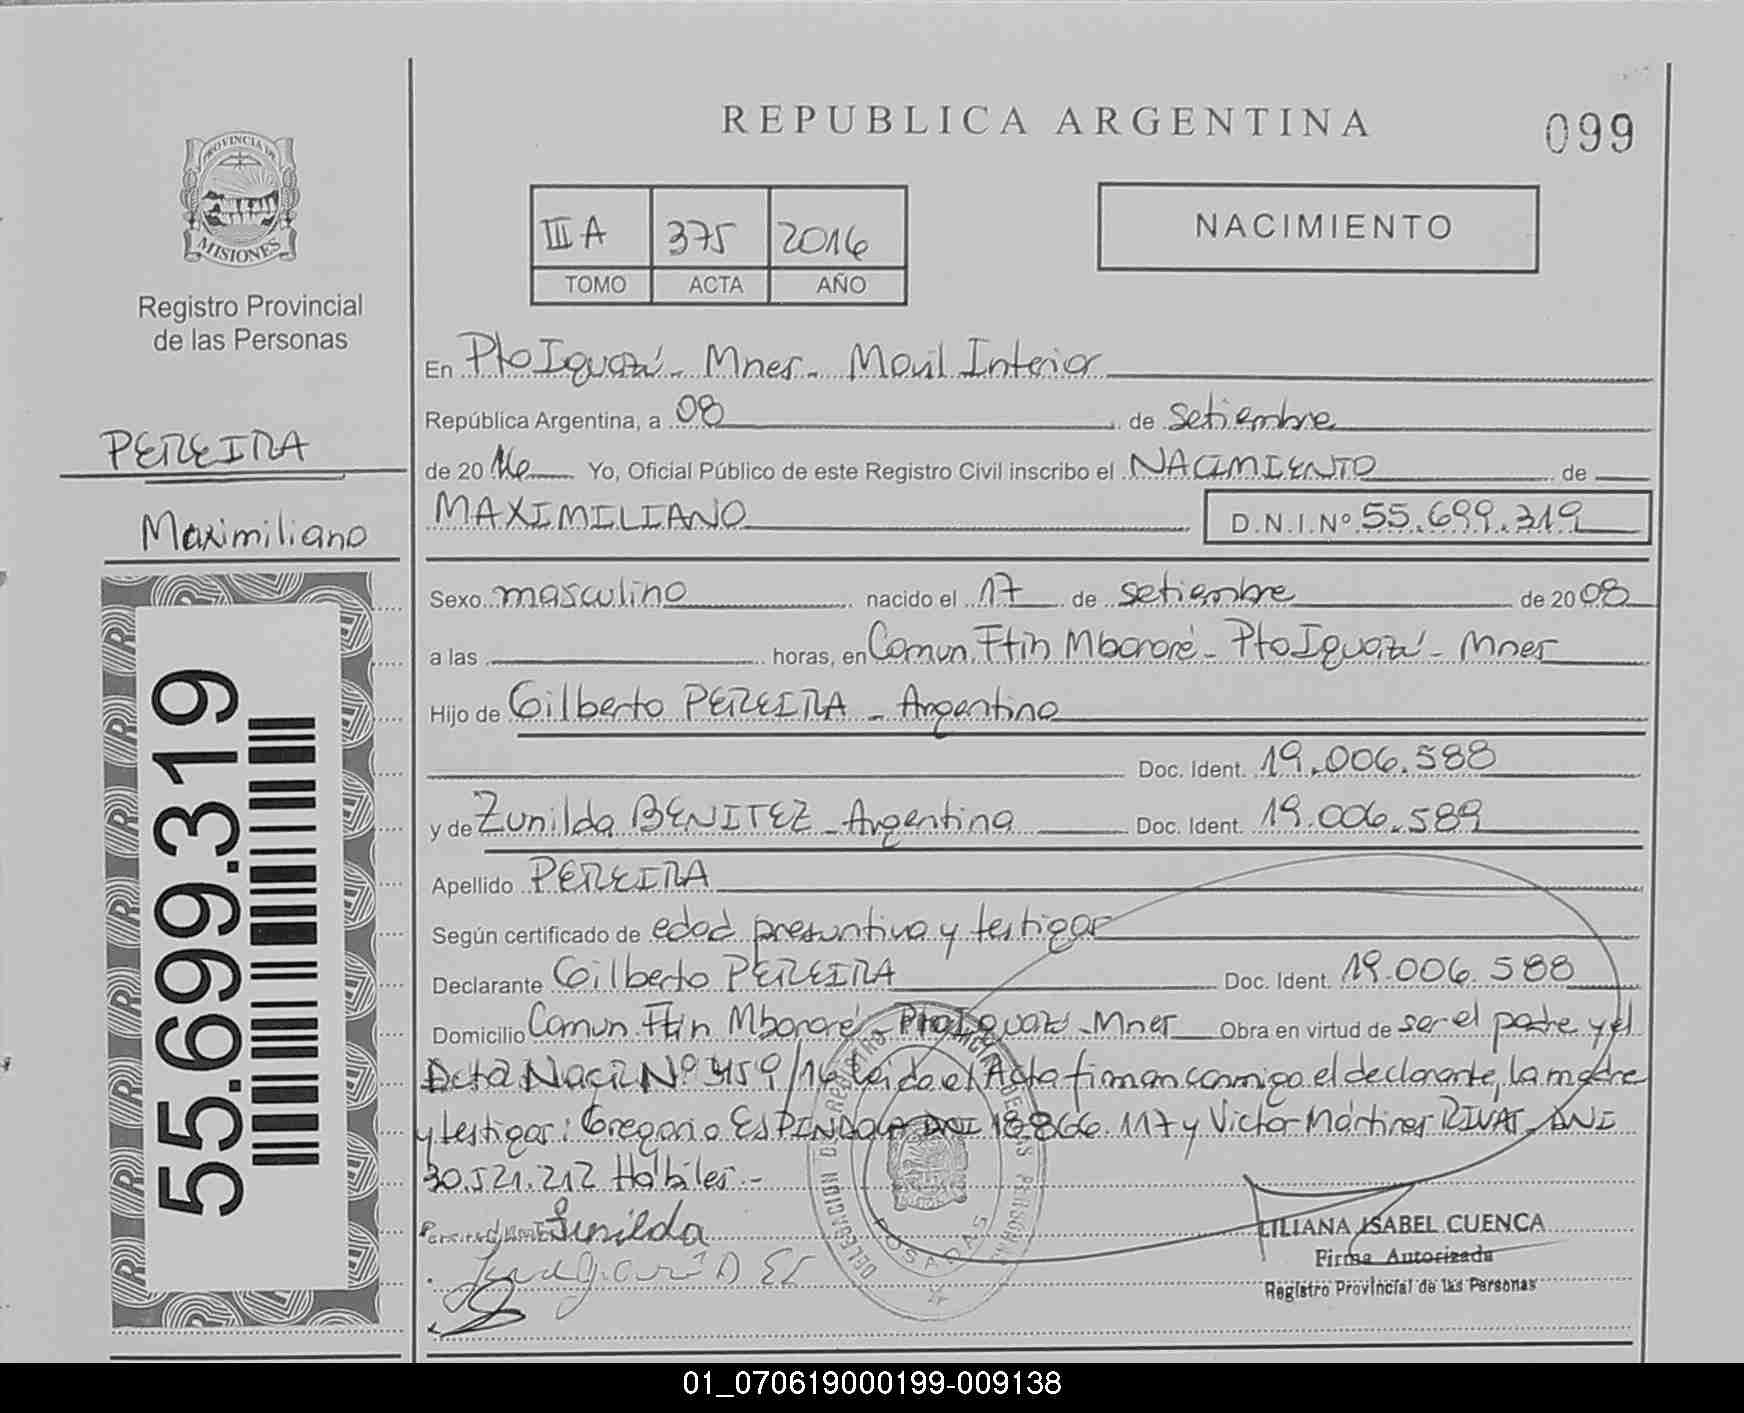 REPUBLICA ARGENTINA
099
PROVINCIA DE
MISIONES
Registro Provincial
de las Personas
III A 375 2016
TOMO ACTA AÑO
NACIMIENTO
PEREIRA
Maximiliano
55.699.319
En Pto Iguazú - Mnes - Movil Interior
República Argentina, a 08 de Setiembre
de 2016 Yo, Oficial Público de este Registro Civil inscribo el NACIMIENTO de
MAXIMILIANO D.N.I.Nº 55.699.319
Sexo masculino nacido el 17 de setiembre de 2008
a las horas, en Comun. Ftin Mbororé - Pto Iguazú - Mnes
Hijo de Gilberto PEREIRA - Argentino
Doc. Ident. 19.006.588
y de Zunilda BENITEZ - Argentina Doc. Ident. 19.006.589
Apellido PEREIRA
Según certificado de edad presuntiva y testigos
Declarante Gilberto PEREIRA Doc. Ident. 19.006.588
Domicilio Comun. Ftin Mbororé - Pto Iguazú - Mnes Obra en virtud de ser el padre y el
Acta Nac. Nº 459/16 Leida el Acta firman conmigo el declarante, la madre
y testigos: Gregorio ESPINDOLA DNI 18.866.117 y Victor Martires RIVAS DNI
30.521.212 Hábiles.-
Sunilda
DELEGACION DE REGISTRO PROVINCIAL DE LAS PERSONAS
POSADAS
LILIANA ISABEL CUENCA
Firma Autorizada
Registro Provincial de las Personas
01_070619000199-009138